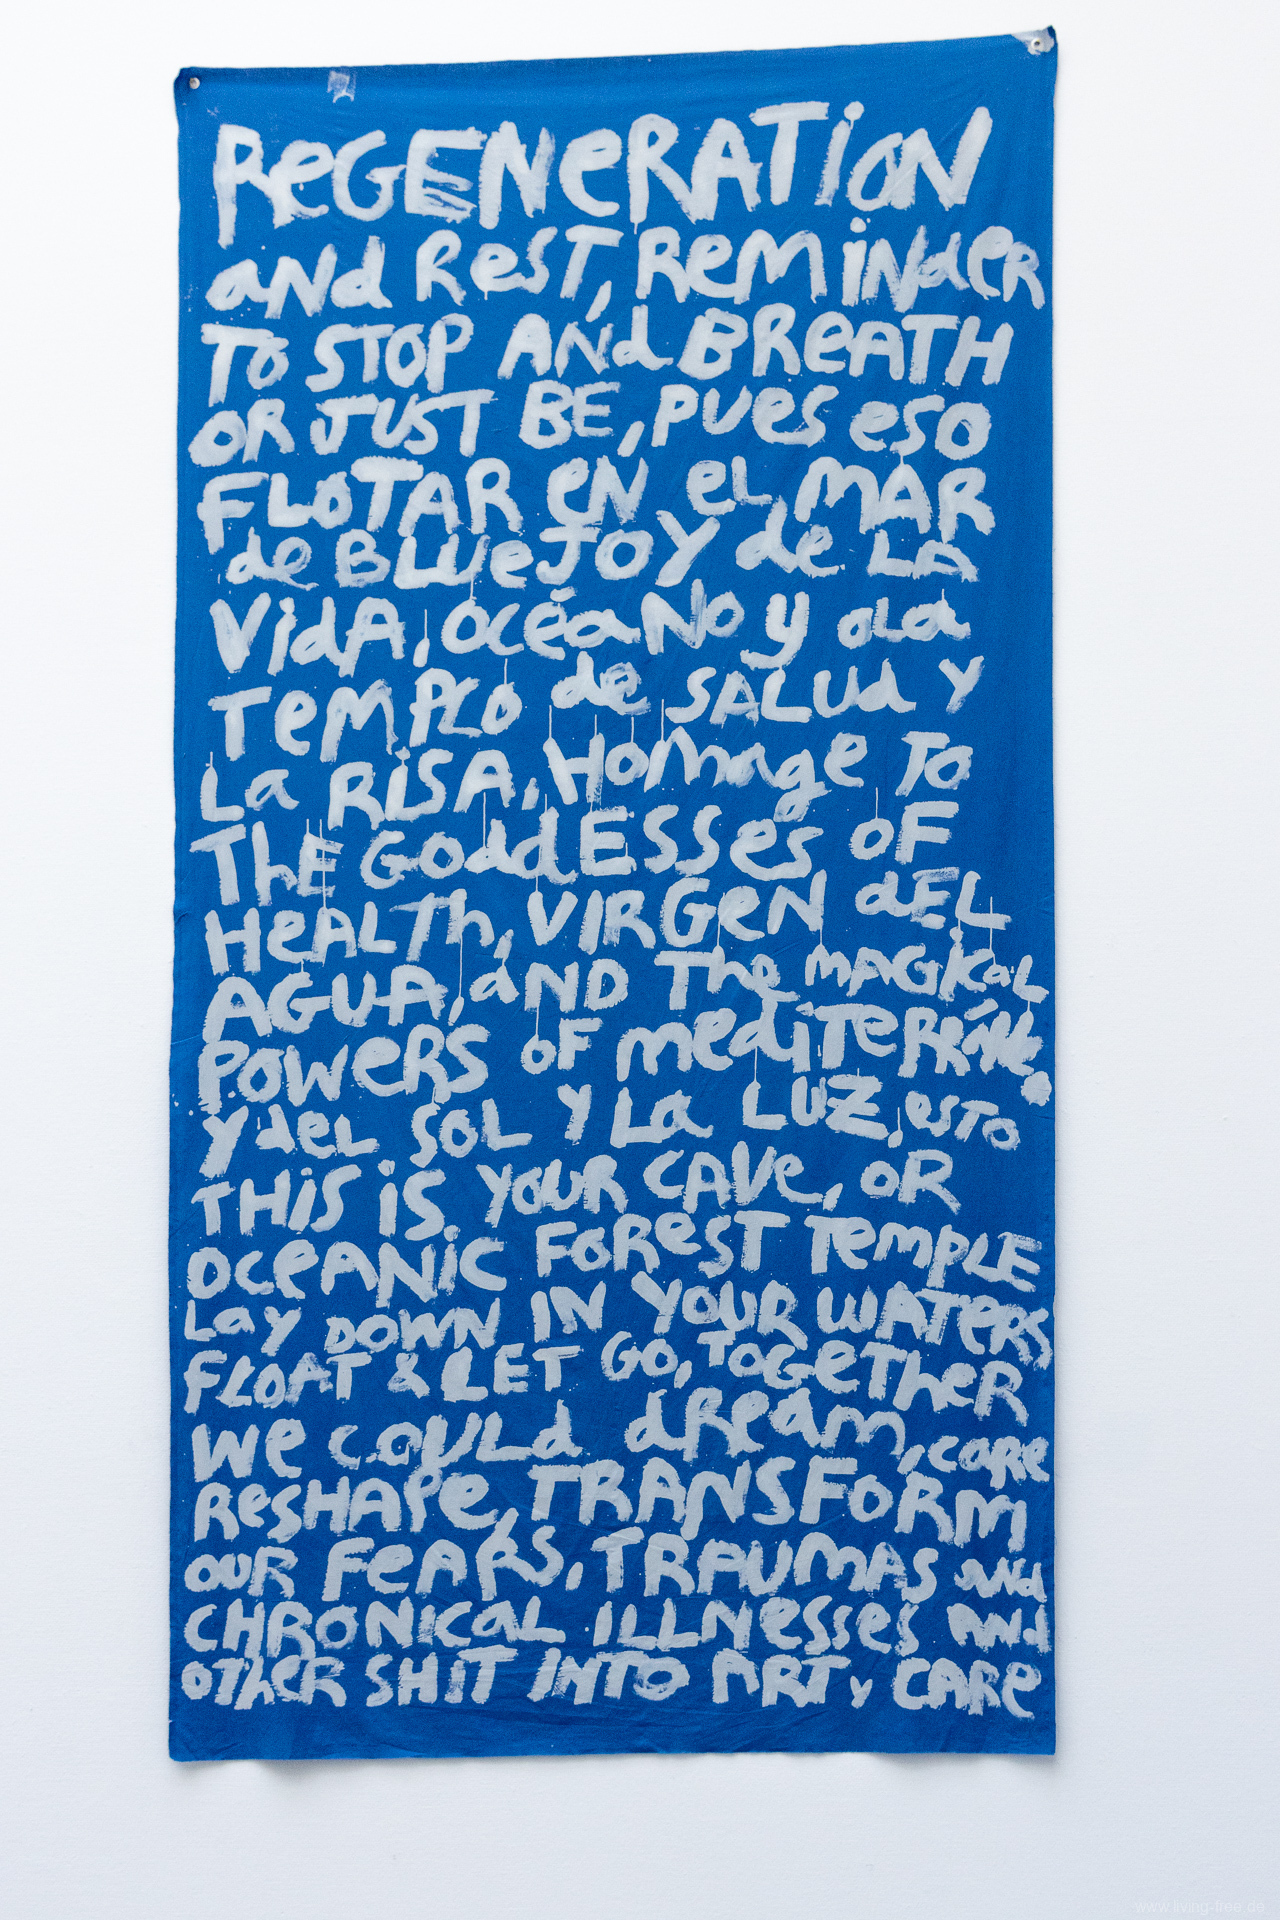 ReGENeRATiON
aNd ReST, ReMiNdeR
To STOP ANd BReATH
OR JUST BE, PUes eso
FLoTAR eN eL MAR
de BLUeJOY de LA
VidA, OCéaNo y oLa
TeMPLO de SALUd y
La RiSA, HoMage To
ThE GoddESSes oF
HeALTh, VIRGeN dEL
AGUA, aND The MAGiCaL
POWeRS oF
y del SOL y La LUZ, eSTO
THiS iS YOUR CAVe, oR
OCeANiC FoReST TeMPLE
Lay DOWN IN YOUR WATeRS
FLOAT & LET GO, ToGeTheR
We COULd dReaM, CaRe
ReSHAPe, TRANSFoRM
OUR FeARS, TRAUMAS aNd
CHRONiCaL ILLNesses ANd
OTheR SHiT INTO ART y CARe
www.living-free.de